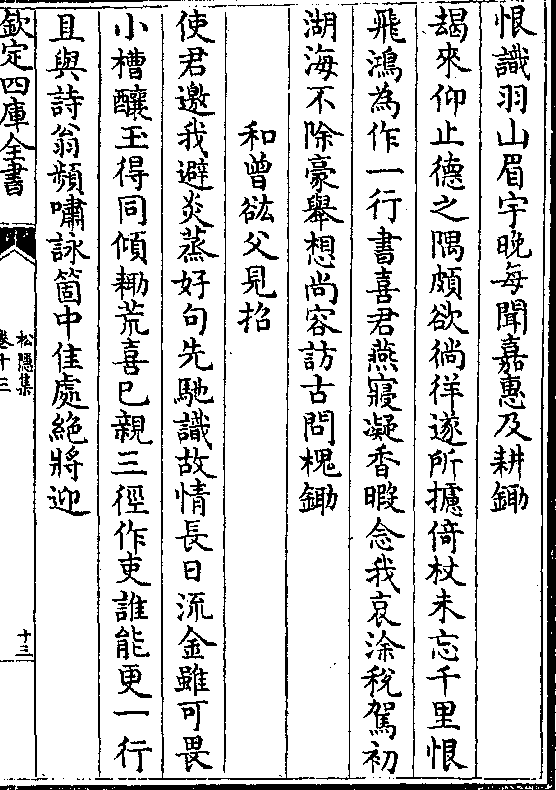 恨識羽山眉宇晚每聞嘉惠及耕鋤
朅來仰止德之隅頗欲徜徉遂所攄倚杖未忘千里恨
飛鴻為作一行書喜君燕寢凝香暇念我哀涂稅駕初
湖海不除豪舉想尚容訪古問櫌鋤
和曾紘父見招
使君邀我避炎蒸好句先馳識故情長日流金雖可畏
小槽釀玉得同傾耡荒喜已親三徑作吏誰能更一行
且與詩翁頻嘯詠箇中佳處絶將迎
欽定四庫全書
松隱集
卷十三
十三